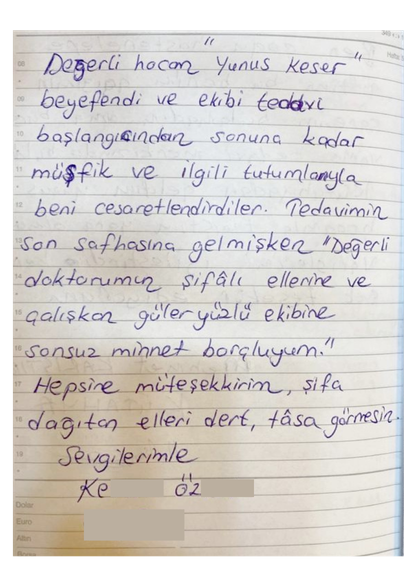 Değerli hocam "Yunus Keser"
beyefendi ve ekibi tedavi
başlangıcından sonuna kadar
müşfik ve ilgili tutumlarıyla
beni cesaretlendirdiler. Tedavimin
son safhasına gelmişken "Değerli
doktorumun şifâlı ellerine ve
çalışkan güler yüzlü ekibine
sonsuz minnet borçluyum."
Hepsine müteşekkirim, şifa
dağıtan elleri dert, tâsa görmesin.
Sevgilerimle
Ke Öz
08
09
10
11
12
14
15
16
17
18
19
Dolar
Euro
Altın